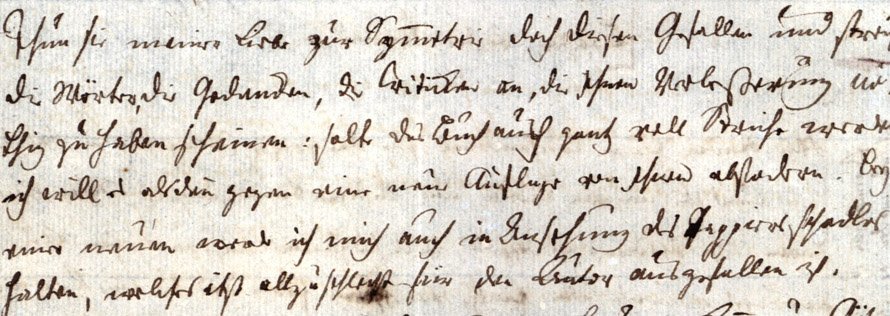 Thun sie meiner Liebe zur Symmetrie doch diesen Gefallen und
die Wörter, die Gedancken, die Critiken an, die Ihnen Verbeßerung nö-
thig zu haben scheinen: solte das Buch auch gantz voll Striche werden
ich will es alsdañ gegen eine neue Auflage von Ihnen abfodern. Bey
einer neuen werde ich mich auch in Ansehung des Pappiers schadlos
halten, welches itzt allzuschlecht für den Autor ausgefallen ist.